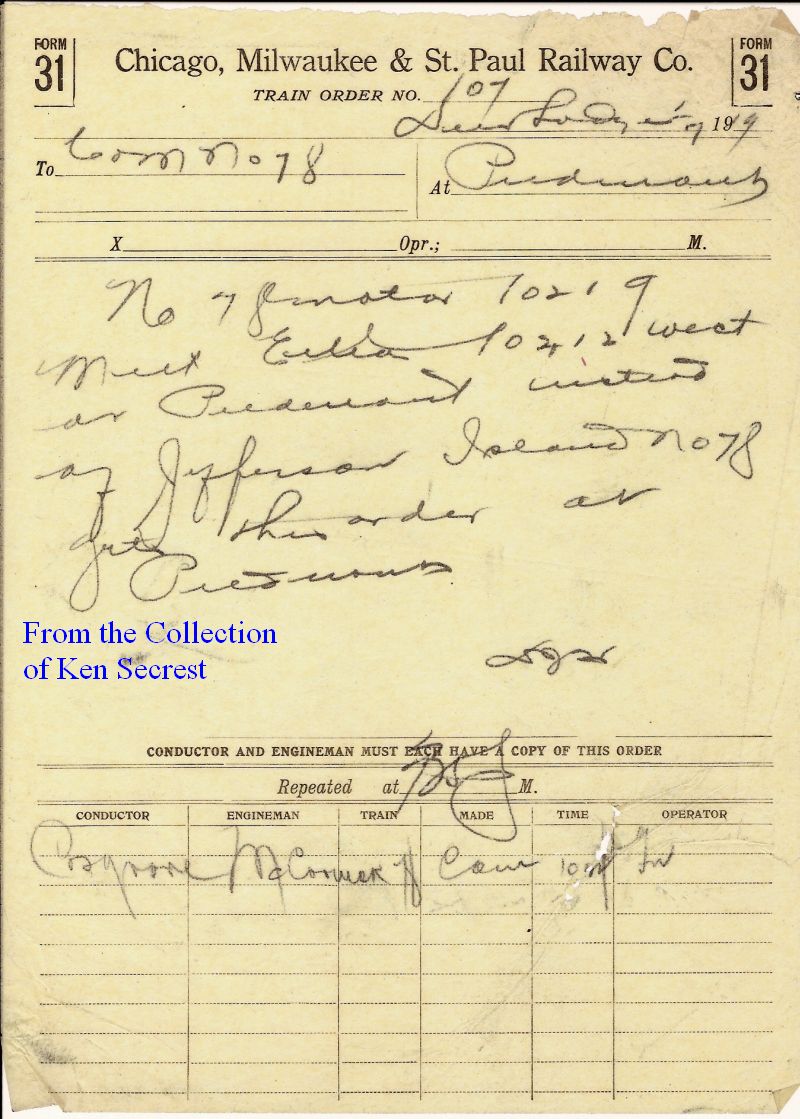 FORM 31
Chicago, Milwaukee & St. Paul Railway Co.
FORM 31
TRAIN ORDER NO. 107
Deer Lodge 1919
To C&M No 78
At Piedmont
X Opr.; M.
No 78 motor 10219
Meet Extra 10212 west
at Piedmont instead
of Jefferson Island No 78
gets this order at
Piedmont
From the Collection
of Ken Secrest
CONDUCTOR AND ENGINEMAN MUST EACH HAVE A COPY OF THIS ORDER
Repeated at M.
CONDUCTOR ENGINEMAN TRAIN MADE TIME OPERATOR
Cosgrove McCormick 78 Com